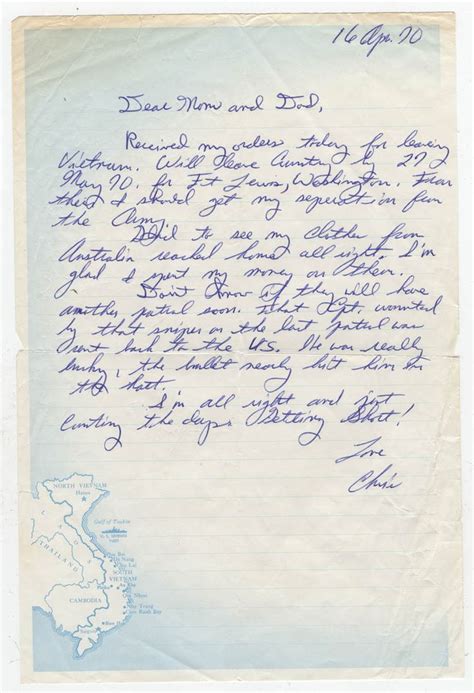 16 Apr. 70
Dear Mom and Dad,
Received my orders today for leaving
Vietnam. Will leave Country by 27
May 70. for Ft Lewis, Washington. From
there I should get my seperation from
the Army.
to see my clothes from
Australia reached home all right. I'm
glad I spent my money on them.
Don't know if they will have
another patrol soon. That Cpt. wounted
by that sniper on the last patrol was
sent back to the U.S. He was really
lucky, the bullet nearly hit him in
the
I'm all right and just
Counting the days. Getting Short!
Love
Chris
NORTH VIETNAM
Hanoi
Gulf of Tonkin
LAOS
THAILAND
Da Nang
Chu Lai
SOUTH
VIETNAM
CAMBODIA
Nha Trang
Cam Ranh Bay
Saigon